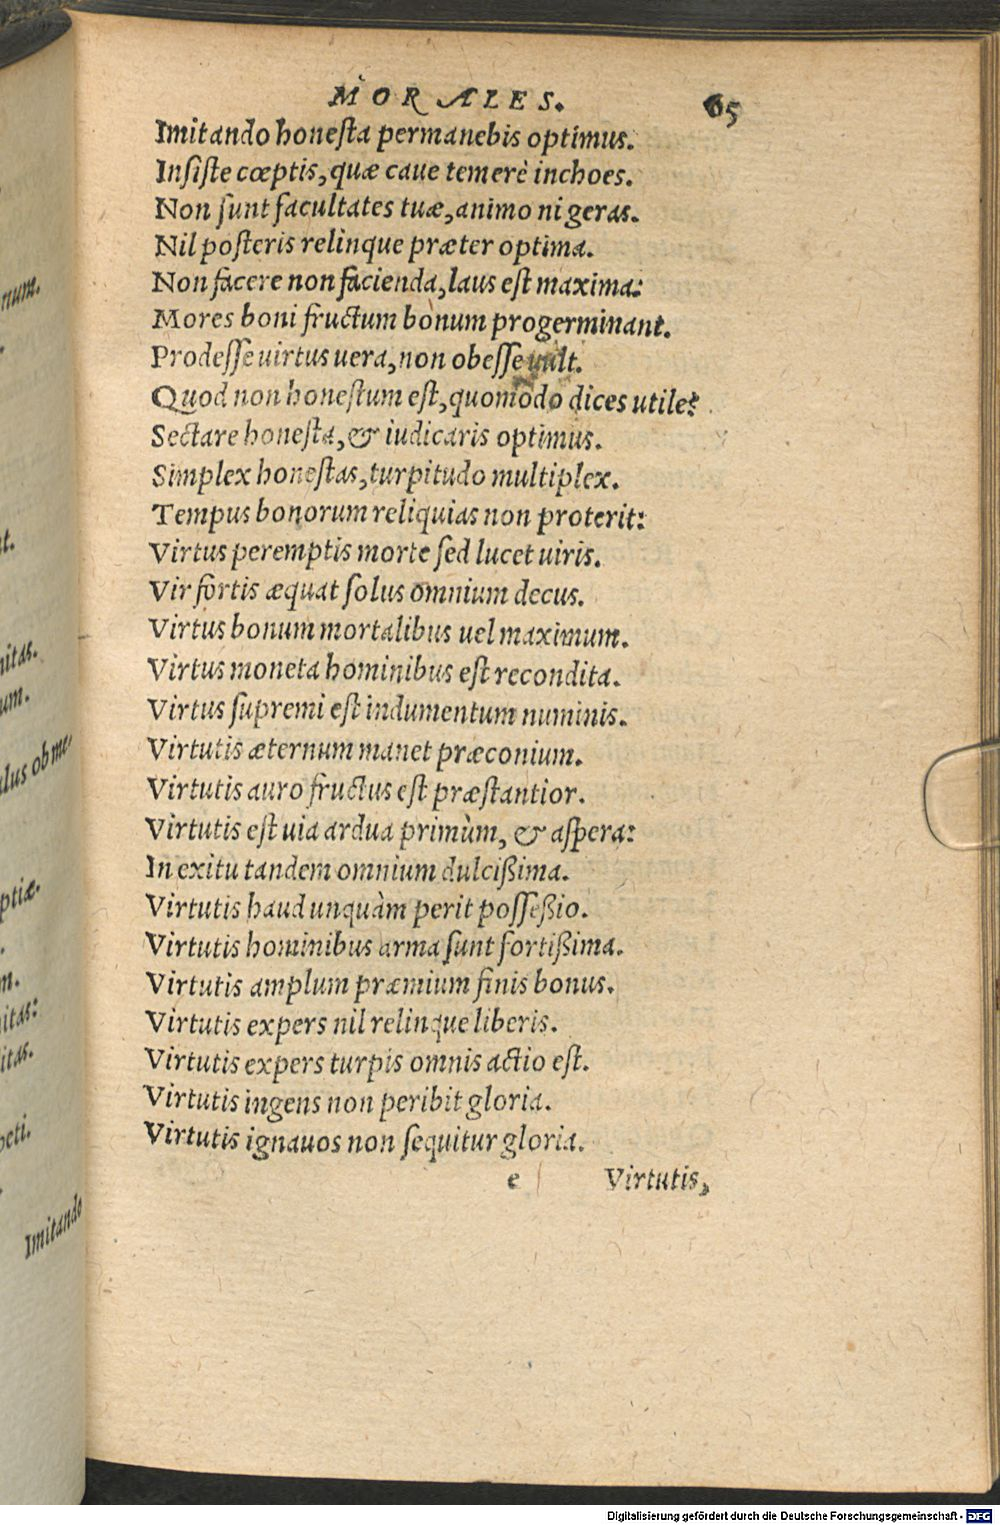 MORALES. 65
Imitando honeſta permanebis optimus.
Inſiſte cœptis, quæ caue temerè inchoes.
Non ſunt facultates tuæ, animo ni geras.
Nil poſteris relinque præter optima.
Non facere non facienda, laus eſt maxima:
Mores boni fructum bonum progerminant.
Prodeſſe uirtus uera, non obeſſe uult.
Quod non honeſtum eſt, quomodo dices utile?
Sectare honeſta, & iudicaris optimus.
Simplex honeſtas, turpitudo multiplex.
Tempus bonorum reliquias non proterit:
Virtus peremptis morte ſed lucet uiris.
Vir fortis æquat ſolus omnium decus.
Virtus bonum mortalibus uel maximum.
Virtus moneta hominibus eſt recondita.
Virtus ſupremi eſt indumentum numinis.
Virtutis æternum manet præconium.
Virtutis auro fructus eſt præſtantior.
Virtutis eſt uia ardua primùm, & aſpera:
In exitu tandem omnium dulcißima.
Virtutis haud unquàm perit poſſeßio.
Virtutis hominibus arma ſunt fortißima.
Virtutis amplum præmium finis bonus.
Virtutis expers nil relinque liberis.
Virtutis expers turpis omnis actio eſt.
Virtutis ingens non peribit gloria.
Virtutis ignauos non ſequitur gloria.
e Virtutis,
num.
nitas.
um.
ulus ob me,
ptiæ.
itas:
itas.
Imitando
Digitalisierung gefördert durch die Deutsche Forschungsgemeinschaft - DFG